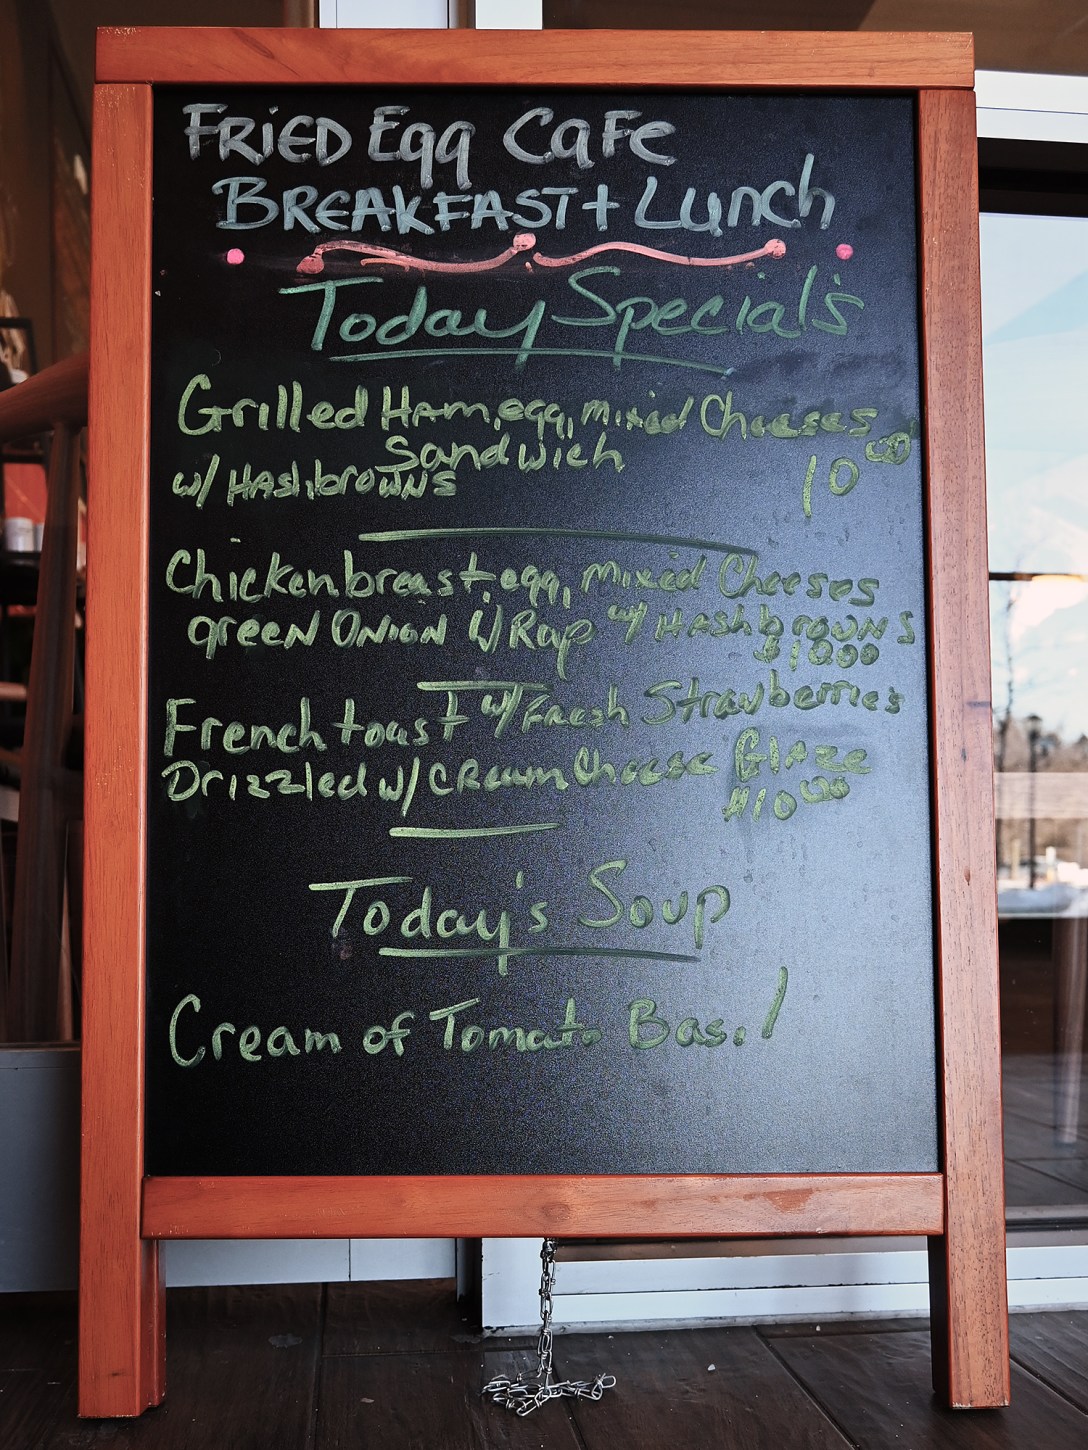 FRiED Egg CaFe
BREAKFAST + Lunch
Today Special's
Grilled Ham, egg, mixed Cheeses
Sandwich
w/ Hashbrowns 10 00
Chicken breast, egg, mixed Cheeses
green Onion W/Rap w/ Hashbrowns
$10.00
French toast w/ Fresh Strawberrie's
Drizzled w/ cream Cheese Glaze
$10 00
Today's Soup
Cream of Tomato Basil